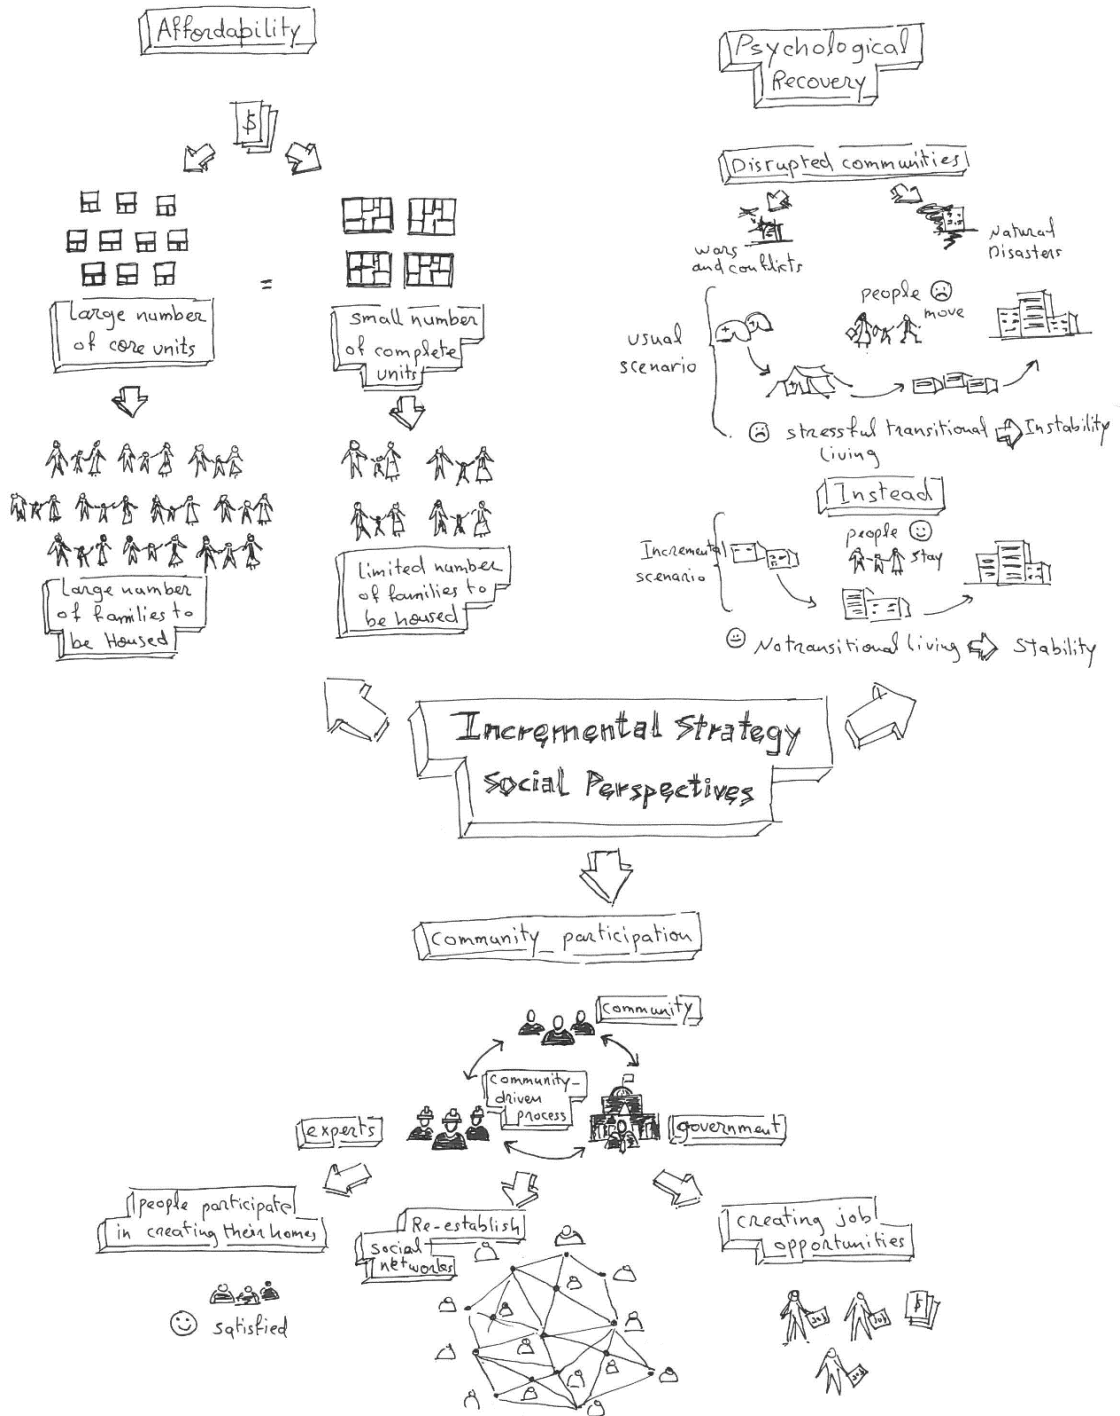 Affordability
$
large number
of core units
=
small number
of complete
units
large number
of families to
be Housed
limited number
of families to
be housed
Psychological
Recovery
Disrupted communities
wars
and conflicts
Natural
Disasters
usual
scenario
people
move
stressful transitional
living
Instability
Instead
Incremental
scenario
people
stay
No transitional living
Stability
Incremental Strategy
Social Perspectives
Community participation
community
community-
driven
process
experts
government
people participate
in creating their homes
satisfied
Re-establish
social
networks
creating job
opportunities
$